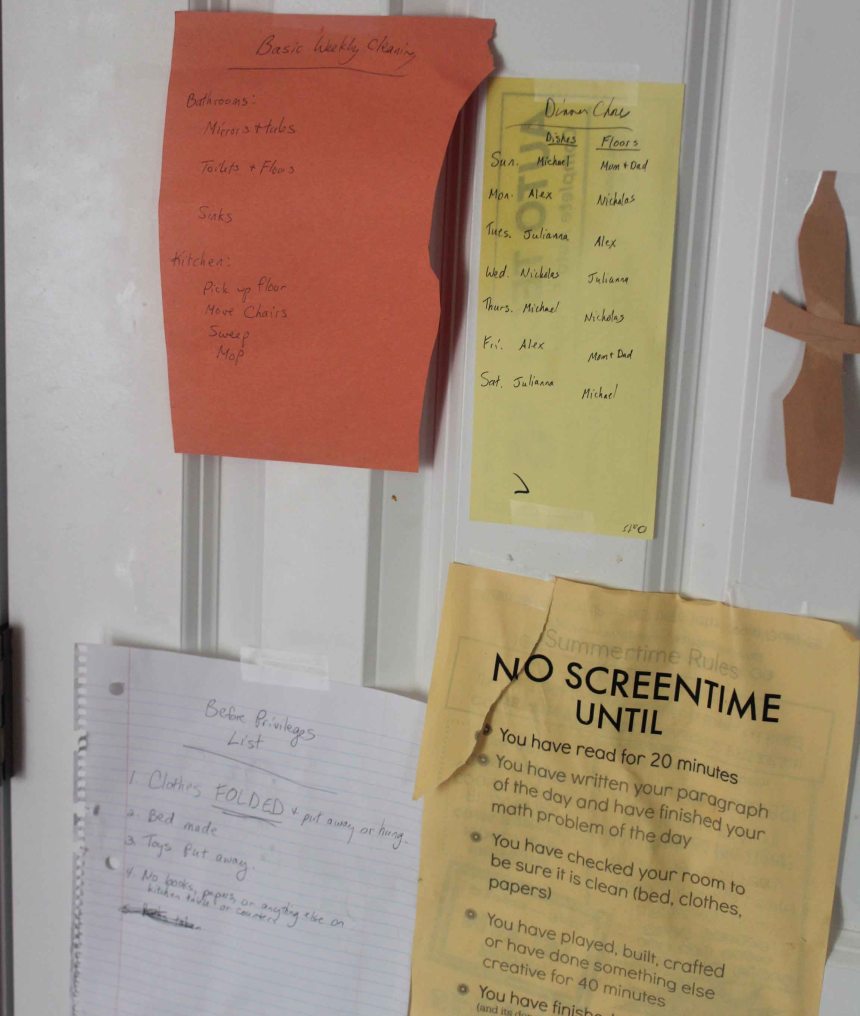 Basic Weekly Cleaning
Bathrooms:
Mirrors + tubs
Toilets + Floors
Sinks
Kitchen:
Pick up floor
Move Chairs
Sweep
Mop
Dinner Chore
Dishes Floors
Sun. Michael Mom + Dad
Mon. Alex Nicholas
Tues. Julianna Alex
Wed. Nicholas Julianna
Thurs. Michael Nicholas
Fri. Alex Mom + Dad
Sat. Julianna Michael
Before Privileges
List
1. Clothes FOLDED + put away or hung.
2. Bed made
3. Toys put away.
4. No books, papers or anything else on
kitchen table or counters
taken
Summertime Rules
NO SCREENTIME
UNTIL
You have read for 20 minutes
You have written your paragraph
of the day and have finished your
math problem of the day
You have checked your room to
be sure it is clean (bed, clothes,
papers)
You have played, built, crafted
or have done something else
creative for 40 minutes
You have
(and its